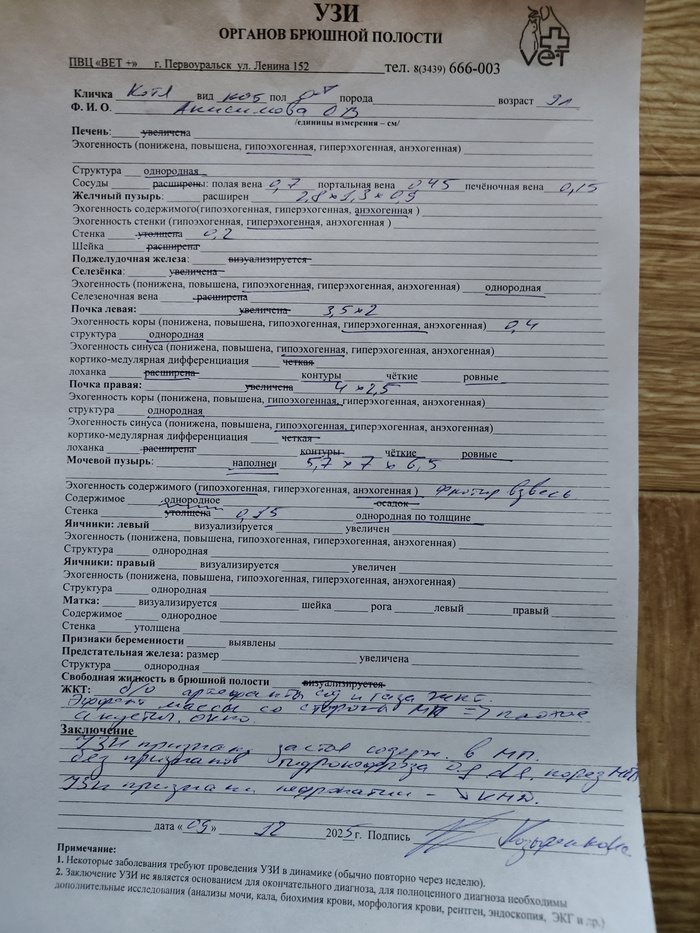 УЗИ
ОРГАНОВ БРЮШНОЙ ПОЛОСТИ
ВЕТ
ПВЦ «ВЕТ +» г. Первоуральск ул. Ленина 152 тел. 8(3439) 666-003
Кличка Котя вид кот пол порода возраст 9л
Ф. И. О. Анисимова ОВ
/единицы измерения – см/
Печень: увеличена
Эхогенность (понижена, повышена, гипоэхогенная, гиперэхогенная, анэхогенная)
Структура однородная
Сосуды расширены: полая вена 0,7 портальная вена 0,45 печёночная вена 0,15
Желчный пузырь: расширен 2,8 x 1,3 x 0,9
Эхогенность содержимого(гипоэхогенная, гиперэхогенная, анэхогенная )
Эхогенность стенки (гипоэхогенная, гиперэхогенная, анэхогенная )
Стенка утолщена 0,2
Шейка расширена
Поджелудочная железа: визуализируется
Селезёнка: увеличена
Эхогенность (понижена, повышена, гипоэхогенная, гиперэхогенная, анэхогенная) однородная
Селезеночная вена расширена
Почка левая: увеличена 3,5 x 2
Эхогенность коры (понижена, повышена, гипоэхогенная, гиперэхогенная, анэхогенная) 0,4
структура однородная
Эхогенность синуса (понижена, повышена, гипоэхогенная, гиперэхогенная, анэхогенная)
кортико-медулярная дифференциация четкая
лоханка расширена контуры чёткие ровные
Почка правая: увеличена 4 x 2,5
Эхогенность коры (понижена, повышена, гипоэхогенная, гиперэхогенная, анэхогенная)
структура однородная
Эхогенность синуса (понижена, повышена, гипоэхогенная, гиперэхогенная, анэхогенная)
кортико-медулярная дифференциация четкая
лоханка расширена контуры чёткие ровные
Мочевой пузырь: наполнен 5,7 x 7 x 6,5
Эхогенность содержимого (гипоэхогенная, гиперэхогенная, анэхогенная ) взвесь
Содержимое однородное осадок
Стенка утолщена 0,15 однородная по толщине
Яичники: левый визуализируется увеличен
Эхогенность (понижена, повышена, гипоэхогенная, гиперэхогенная, анэхогенная)
Структура однородная
Яичники: правый визуализируется увеличен
Эхогенность (понижена, повышена, гипоэхогенная, гиперэхогенная, анэхогенная)
Структура однородная
Матка: визуализируется шейка рога левый правый
Содержимое однородное
Стенка утолщена
Признаки беременности выявлены
Предстательная железа: размер увеличена
Структура однородная
Свободная жидкость в брюшной полости визуализируется
ЖКТ: б/о артефакты газа ЖКТ.
Эффект массы со стороны МП => плохое
акустич. окно.
Заключение
УЗИ признаки застоя содерж. в МП.
без признаков гидронефроза
УЗИ признаки нефропатии
дата « 09 » 12 2025 г. Подпись
Примечание:
1. Некоторые заболевания требуют проведения УЗИ в динамике (обычно повторно через неделю).
2. Заключение УЗИ не является основанием для окончательного диагноза, для полноценного диагноза необходимы
дополнительные исследования (анализы мочи, кала, биохимия крови, морфология крови, рентген, эндоскопия, ЭКГ и др.)